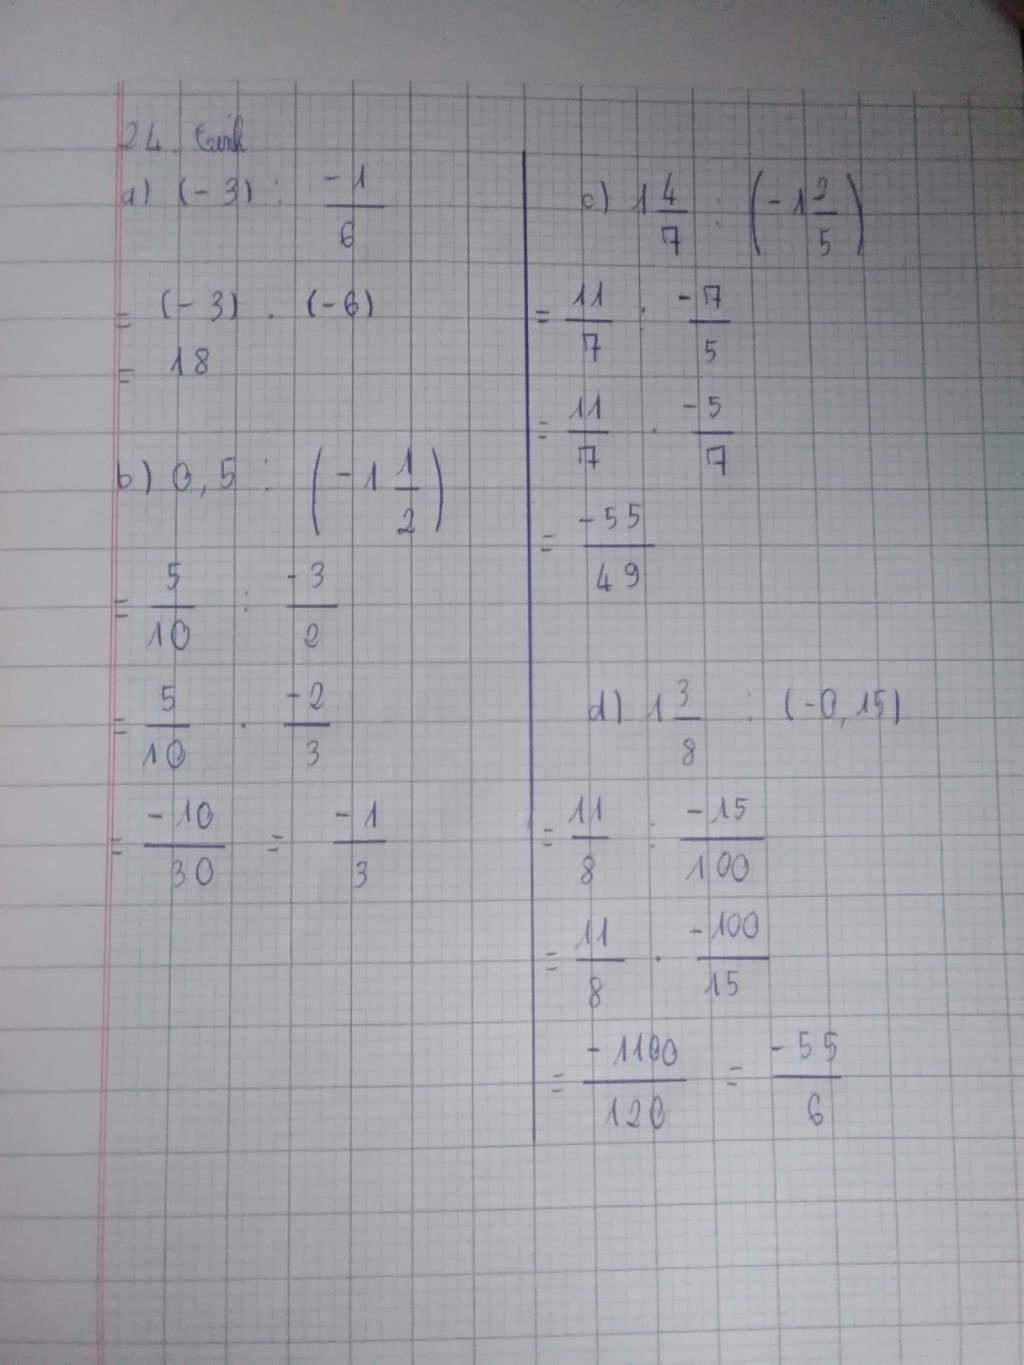 24. Tính
a) (-3) : \frac{-1}{6}
= (-3) . (-6)
= 18
b) 0,5 : (-1\frac{1}{2})
= \frac{5}{10} : \frac{-3}{2}
= \frac{5}{10} . \frac{-2}{3}
= \frac{-10}{30} = \frac{-1}{3}
c) 1\frac{4}{7} : (-1\frac{2}{5})
= \frac{11}{7} : \frac{-7}{5}
= \frac{11}{7} . \frac{-5}{7}
= \frac{-55}{49}
d) 1\frac{3}{8} : (-0,15)
= \frac{11}{8} : \frac{-15}{100}
= \frac{11}{8} . \frac{-100}{15}
= \frac{-1100}{120} = \frac{-55}{6}